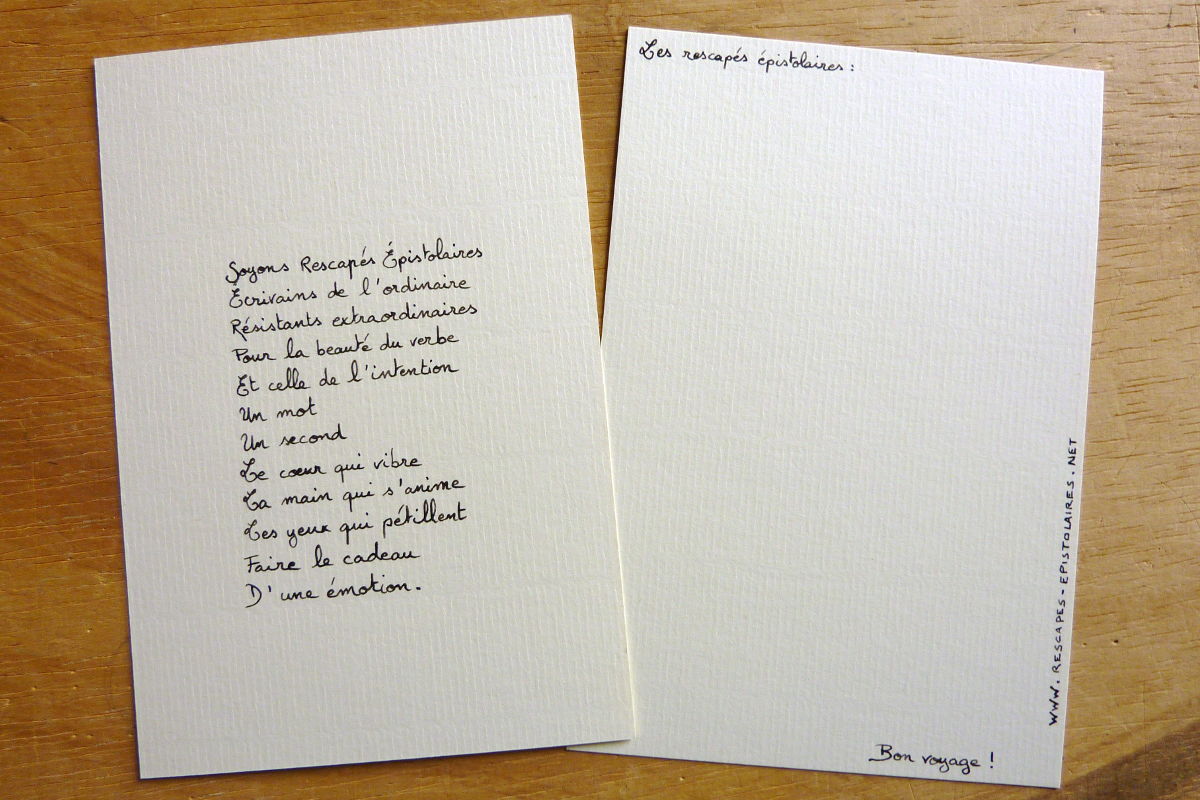 Soyons Rescapés Épistolaires
Écrivains de l'ordinaire
Résistants extraordinaires
Pour la beauté du verbe
Et celle de l'intention
Un mot
Un second
Le cœur qui vibre
La main qui s'anime
Les yeux qui pétillent
Faire le cadeau
D'une émotion.
Les rescapés épistolaires :
WWW.RESCAPES-EPISTOLAIRES.NET
Bon voyage !